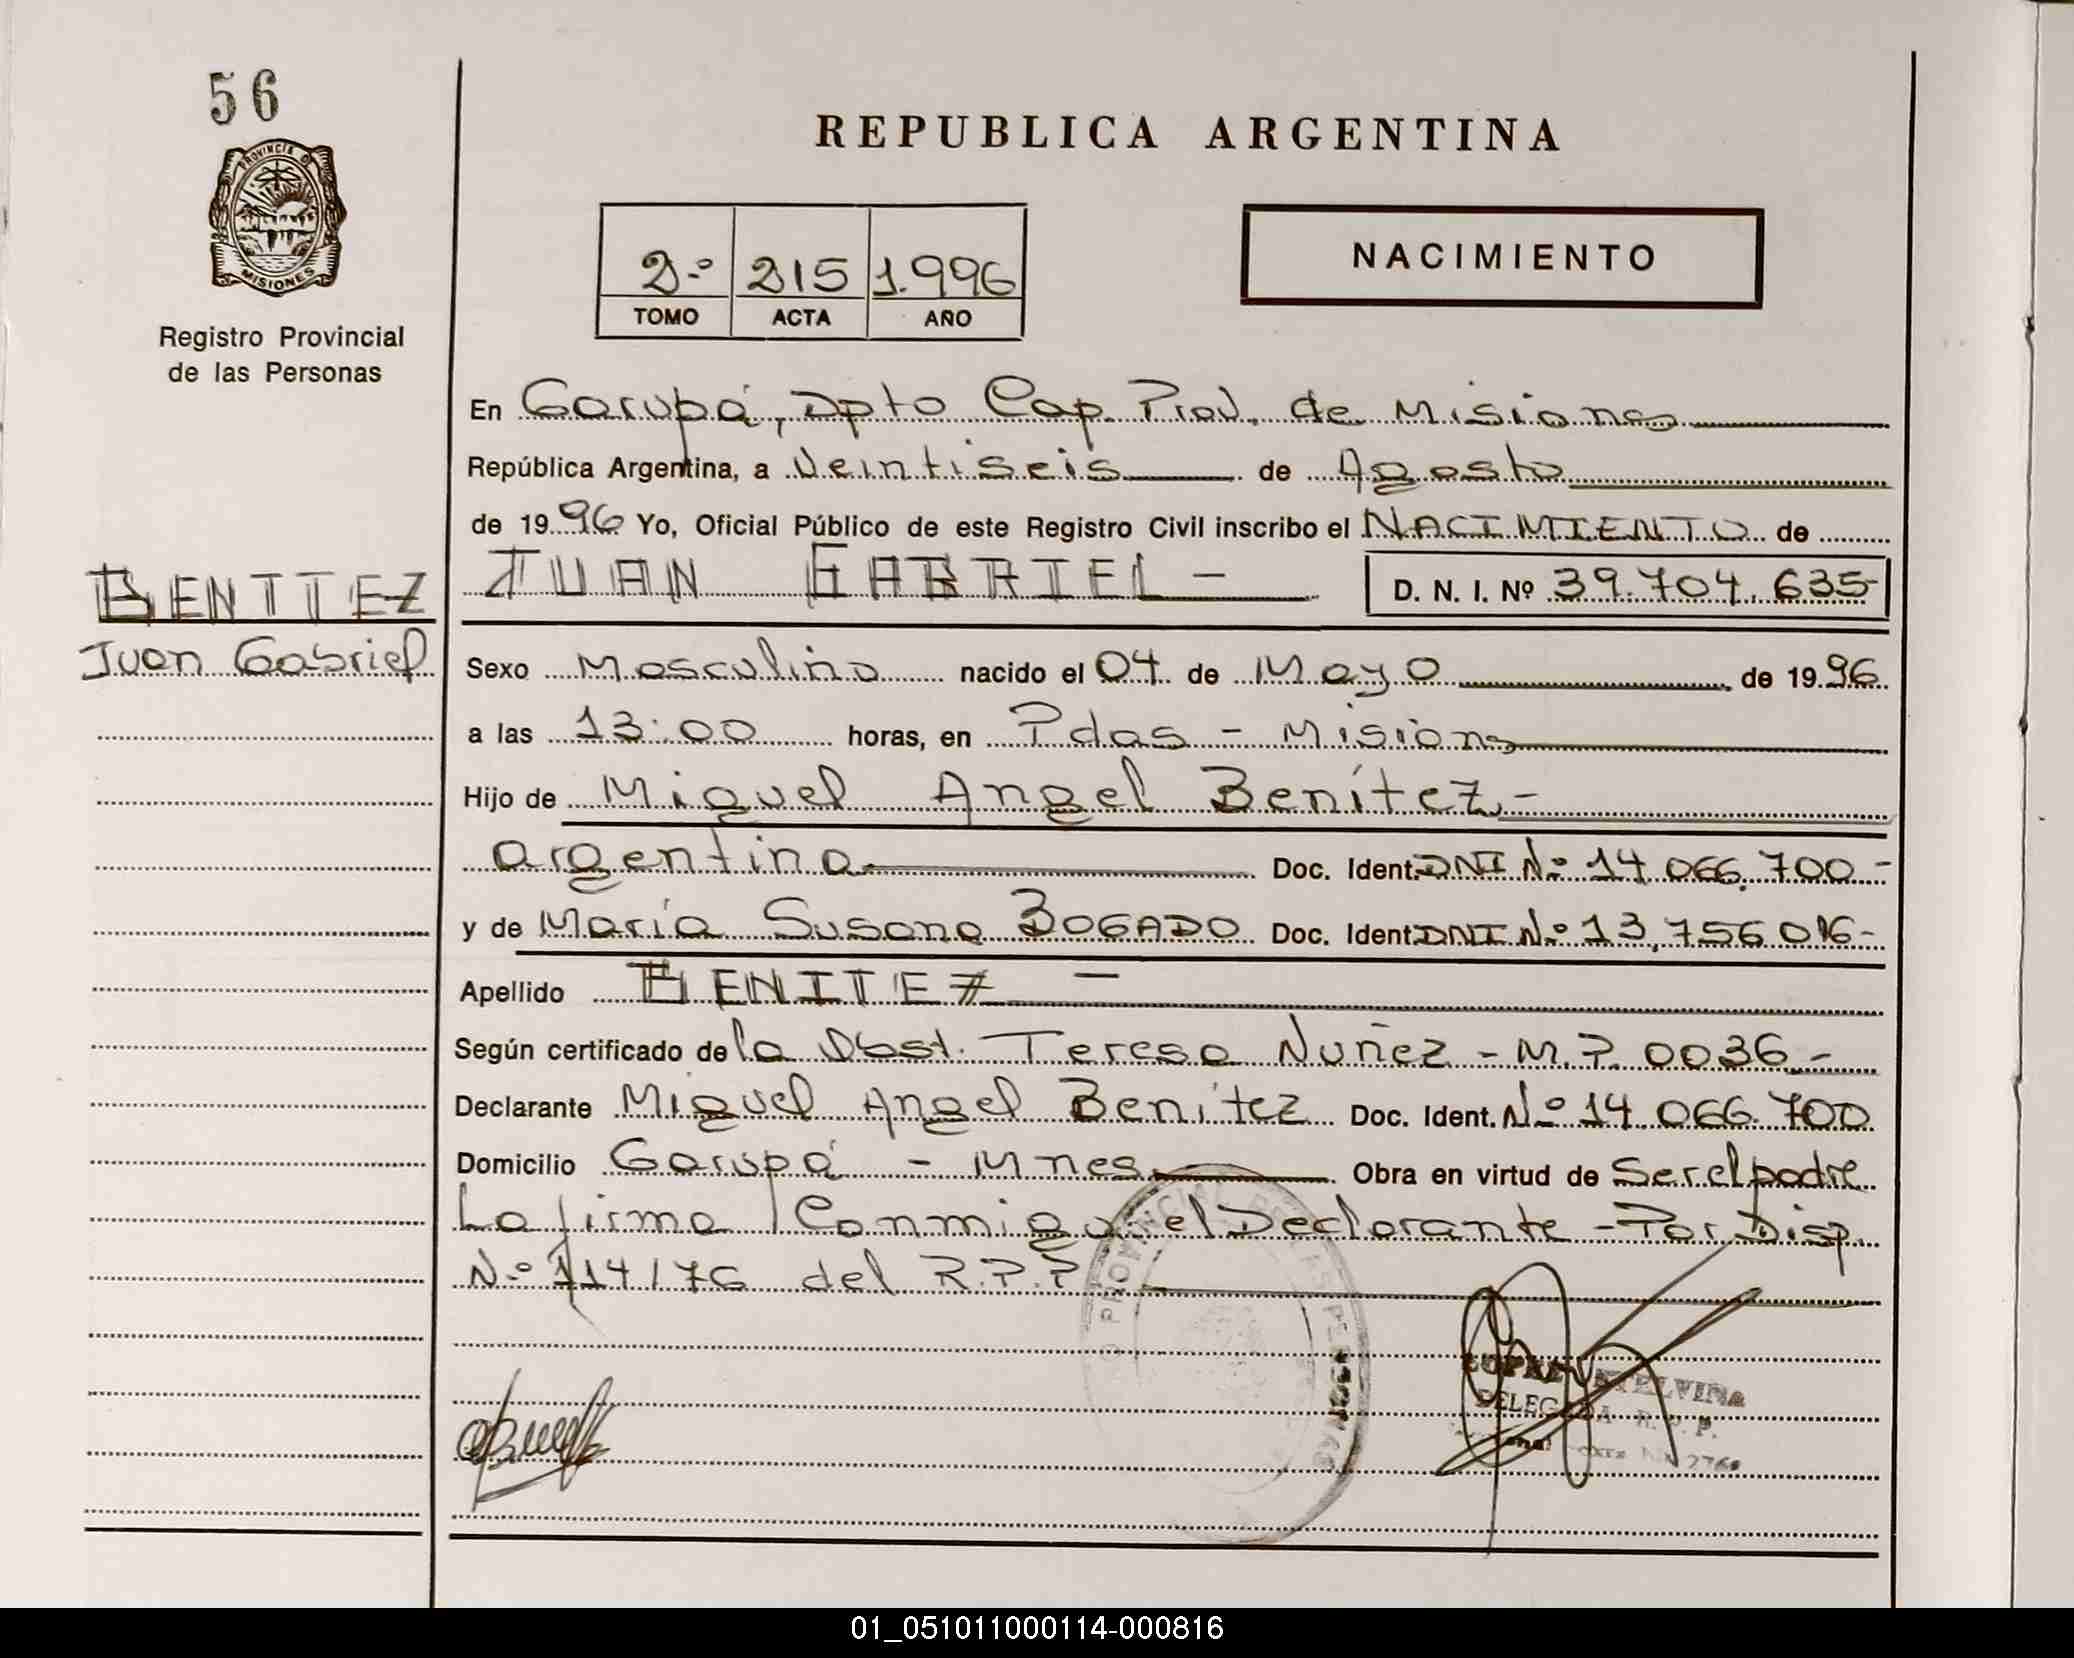 56
PROVINCIA D
MISIONES
Registro Provincial
de las Personas
REPUBLICA ARGENTINA
2.º 215 1.996
TOMO ACTA AÑO
NACIMIENTO
En Garupá, Dpto Cap. Prov. de Misiones
República Argentina, a Veintiseis de Agosto
de 1996 Yo, Oficial Público de este Registro Civil inscribo el NACIMIENTO de
BENITEZ
Juan Gabriel
JUAN GABRIEL -
D. N. I. Nº 39.704.635-
Sexo Masculino nacido el 04 de Mayo de 1996
a las 13:00 horas, en Pdas - Misiones
Hijo de Miguel Angel Benítez -
argentina Doc. Ident. DNI Nº 14.066.700-
y de María Susana BOGADO Doc. Ident. DNI Nº 13.756.016-
Apellido BENITEZ -
Según certificado de la Obst. Teresa Nuñez - M.P. 0036 -
Declarante Miguel Angel Benítez Doc. Ident. Nº 14.066.700
Domicilio Garupá - Mnes Obra en virtud de Ser el padre
La firma Conmigo el Declarante - Por Disp.
Nº 114/76 del R.P.P
ETELVINA
DELEGADA R. P. P.
01_051011000114-000816